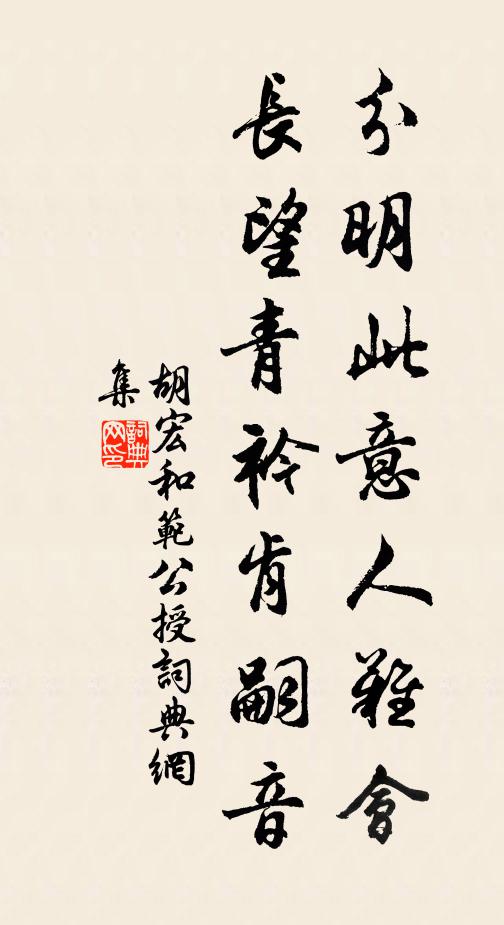 分明此意人難會
長望青衿肯嗣音
胡宏和範公授詞典網
集
詞典
网印